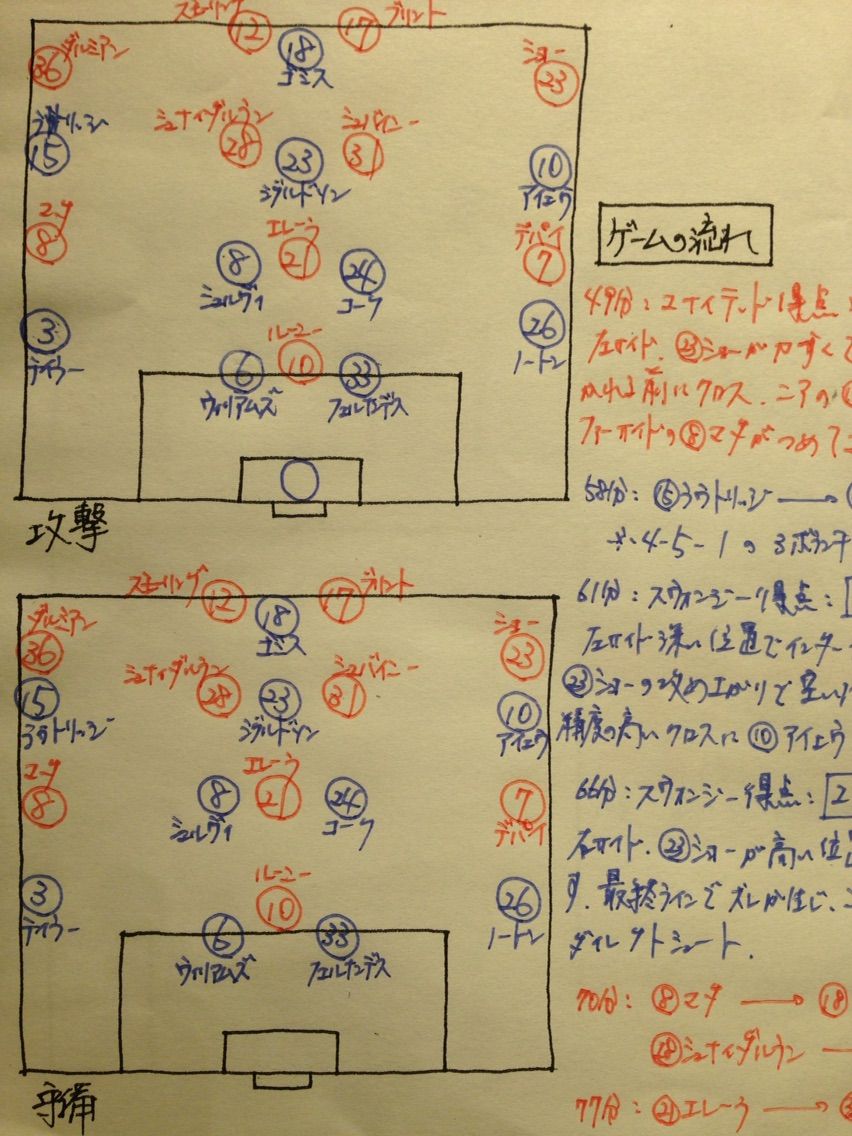 スモーリング
ブリント
12
17
ダルミアン
18
ショー
36
ゴミス
23
ラウトリッジ
シュナイダルラン
シュバイニー
15
28
23
31
10
シグルドソン
アイェウ
マタ
エレーラ
デパイ
8
8
21
24
7
シェルヴィ
コーク
3
ルーニー
26
テイラー
ノートン
6
10
33
ウィリアムズ
フェルナンデス
攻撃
スモーリング
ブリント
ダルミアン
12
17
ショー
36
18
23
ゴミス
シュナイダルラン
シュバイニー
15
28
23
31
10
ラウトリッジ
シグルドソン
アイェウ
マタ
エレーラ
8
8
21
24
7
シェルヴィ
コーク
デパイ
ルーニー
3
10
26
テイラー
ノートン
6
33
ウィリアムズ
フェルナンデス
守備
ゲームの流れ
49分：ユナイテッド得点
左サイド、㉓ショーが力ずくで
かれる前にクロス、ニアの
ファーサイドの⑧マタがつめて
58分：⑮ラウトリッジ→
※4-5-1の3ボランチ
61分：スウォンジー得点：
左サイド深い位置でインター
㉓ショーの攻め上がりで空い
精度の高いクロスに⑩アイェウ
66分：スウォンジー得点：2
右サイド、㉓ショーが高い位
す、最終ラインでズレが生じ、
ダイレクトシュート．
70分：⑧マタ→⑱
㉘シュナイダルラン
77分：㉑エレーラ→